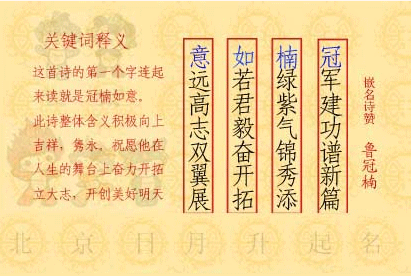 关键词释义
这首诗的第一个字连起
来读就是冠楠如意。
此诗整体含义积极向上
吉祥，隽永。祝愿他在
人生的舞台上奋力开拓
立大志，开创美好明天
嵌名诗赞 鲁冠楠
冠军建功谱新篇
楠绿紫气锦秀添
如若君毅奋开拓
意远高志双翼展
北京日月升起名